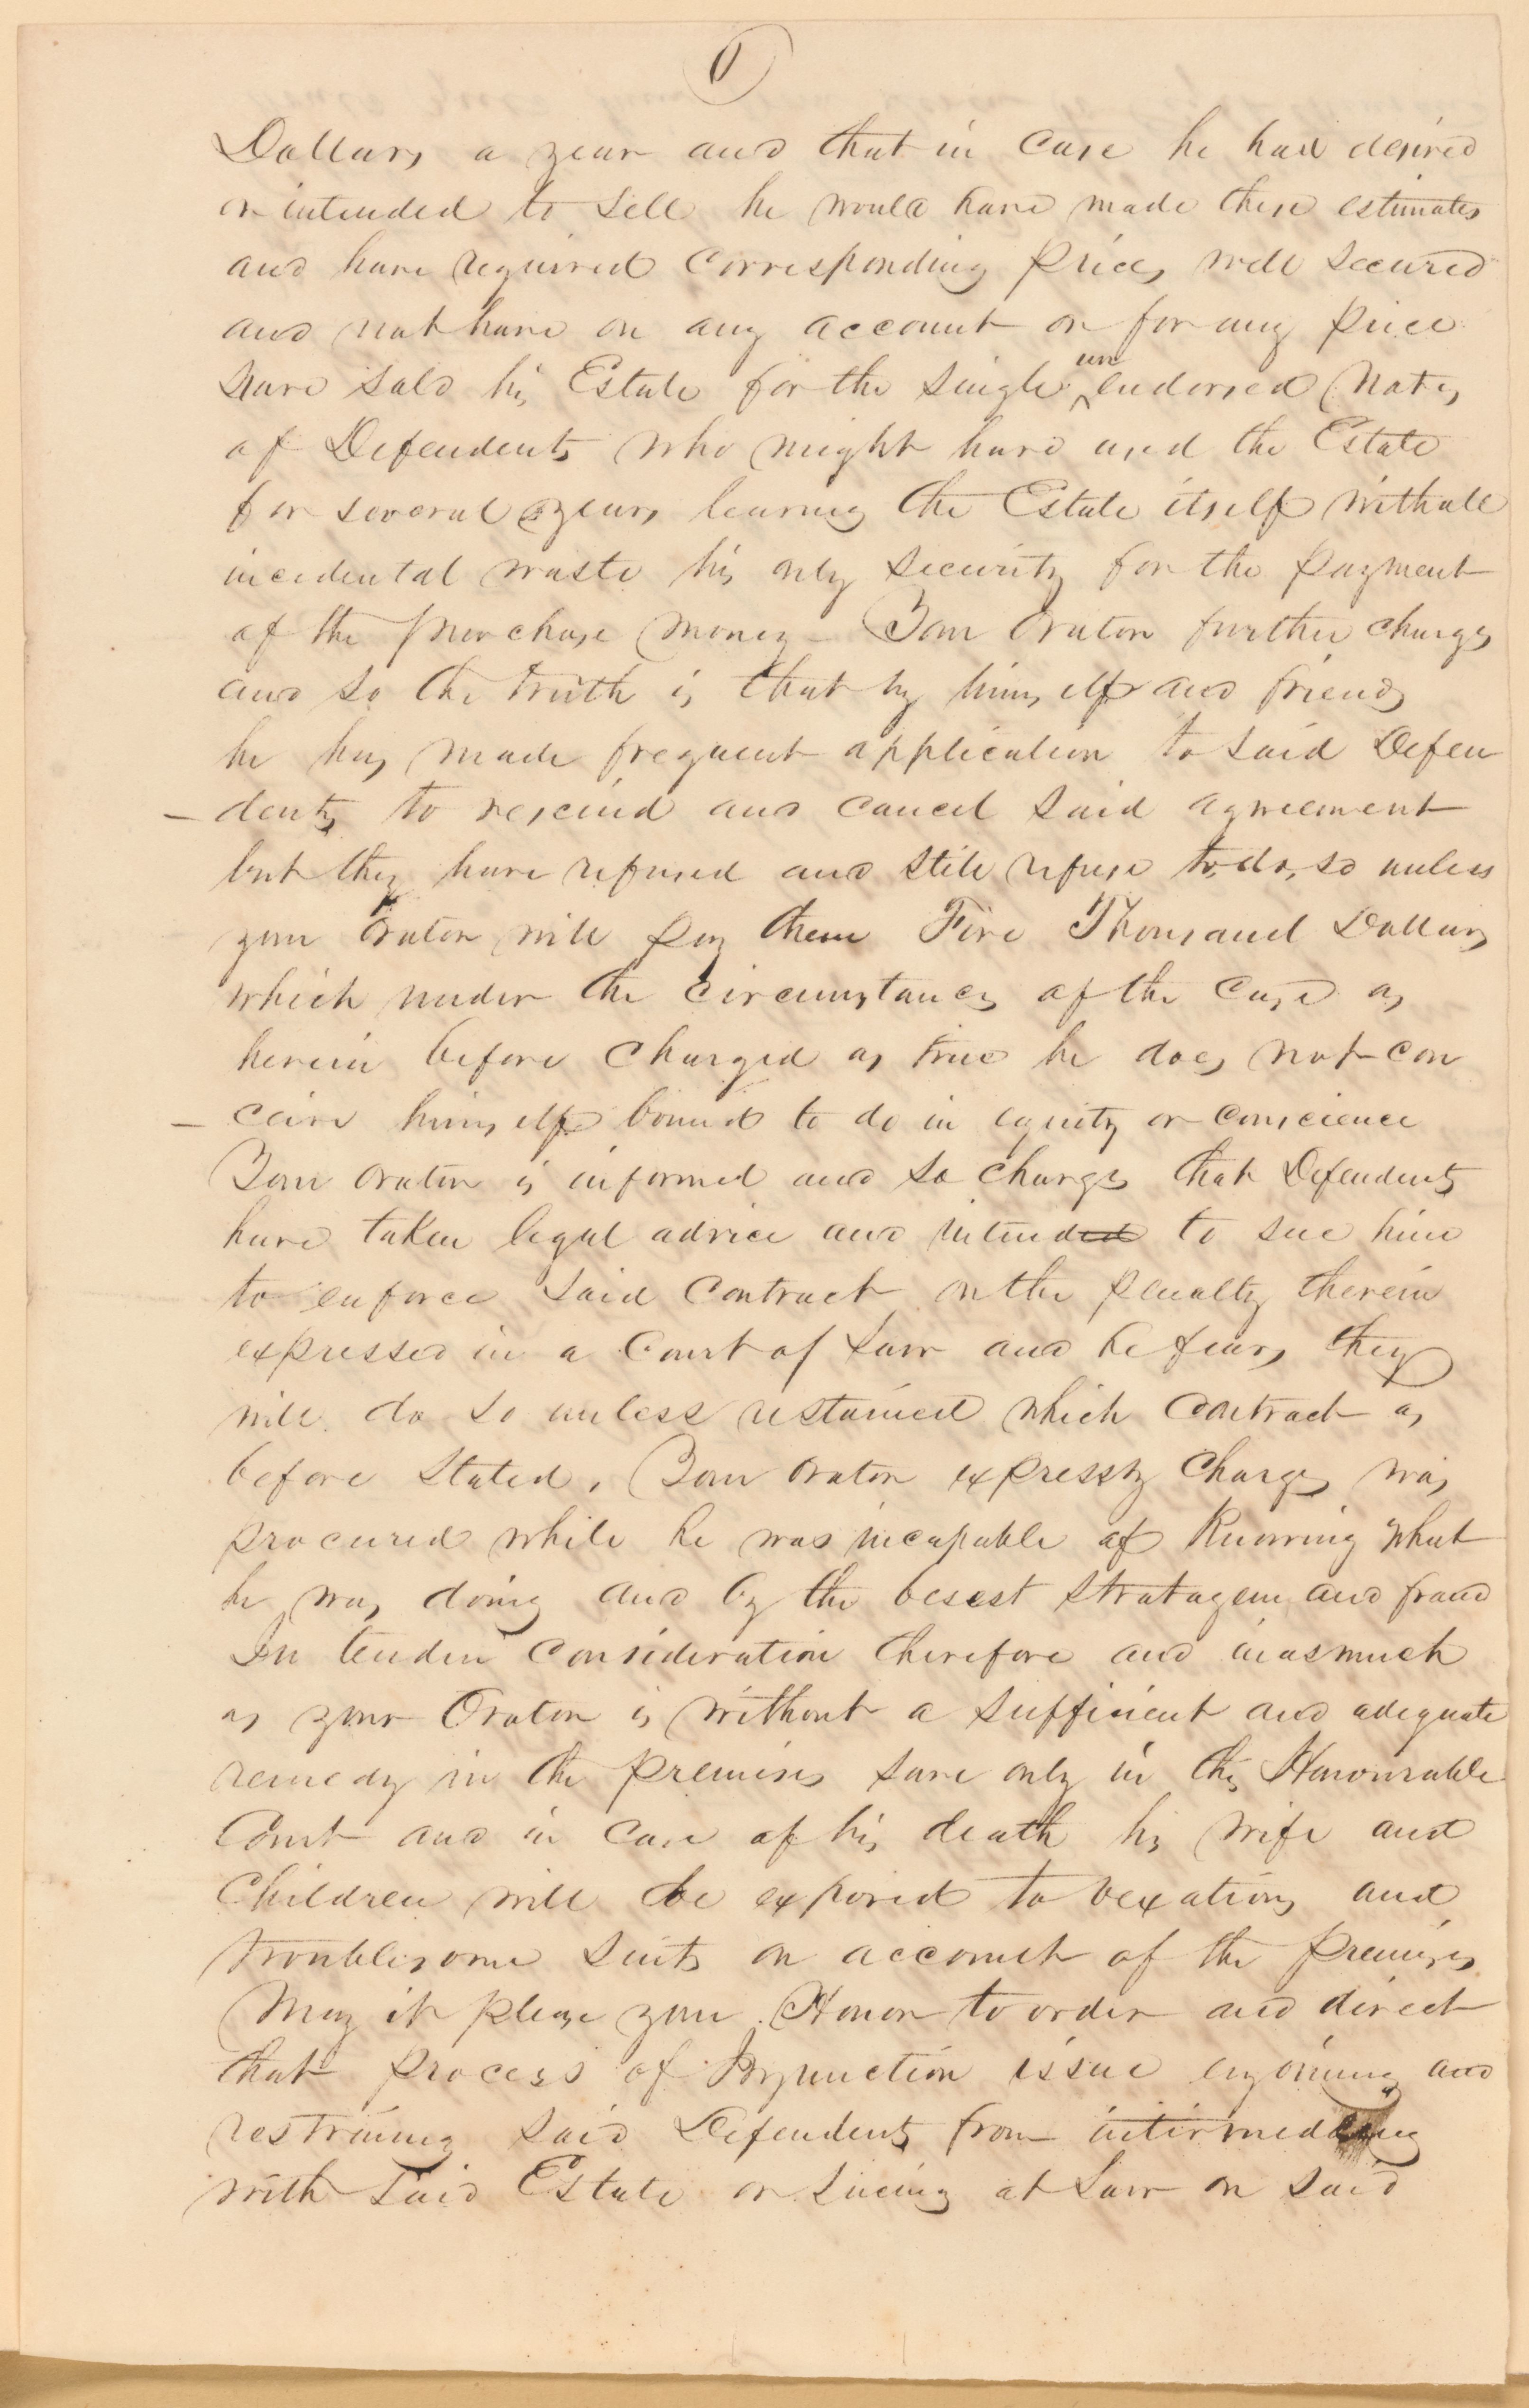 Dollars a year and that in case he had desired
or intended to sell he would have made these estimates
and have required corresponding prices well secured
and not have on any account or for any price
have sold his Estate for the single unendorsed Notes
of Defendents who might have used the Estate
for several years leaving the Estate itself with all
incidental waste his only security for the payment
of the purchase money – Your Orator further charges
and so the truth is that by himself and friends
he has made frequent application to said Defen
– dents to rescind and cancel said agreement
but they have refused and still refuse to do, so unless
your Orator will pay them Five Thousand Dollars
which under the circumstances of the case as
herein before charged as true he does not con
– ceive himself bound to do in equity or conscience
Your Orator is informed and so charges that Defendents
have taken legal advice and intended to sue him
to enforce said contract or the penalty therein
expressed in a Court of Law and he fears they
will do so unless restained which contract as
before stated, Your Orator expressly charges was
procured while he was incapable of Knowing what
he was doing and by the besest stratagem and fraud
In tender consideration therefore and inasmuch
as your Orator is without a sufficient and adequate
remedy in the premises save only in this Honourable
Court and in case of his death his wife and
Children will be exposed to vexations and
troublesome suits on account of the premises
May it please your Honor to order and direct
that process of Injunction issue enjoining and
restraining said Defendents from intermedling
with said Estate or sueing at Law on said